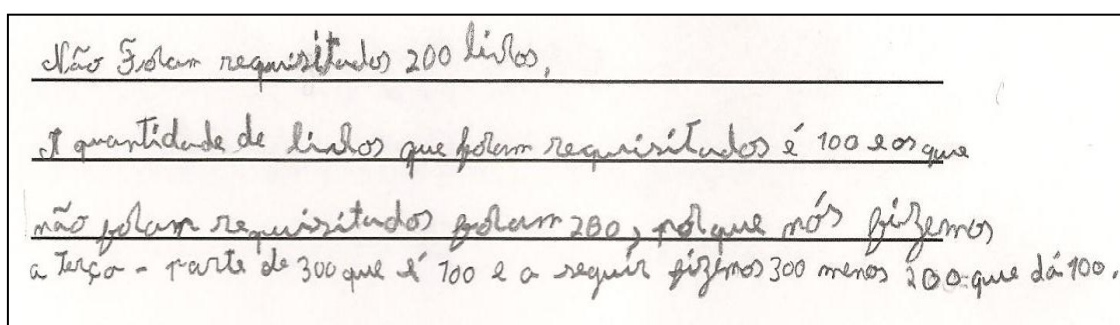 Não Foram requisitados 200 livros.
A quantidade de livros que foram requisitados é 100 e os que
não foram requisitados foram 200, porque nós fizemos
a terça - parte de 300 que é 100 e a seguir fizemos 300 menos 200 que dá 100.